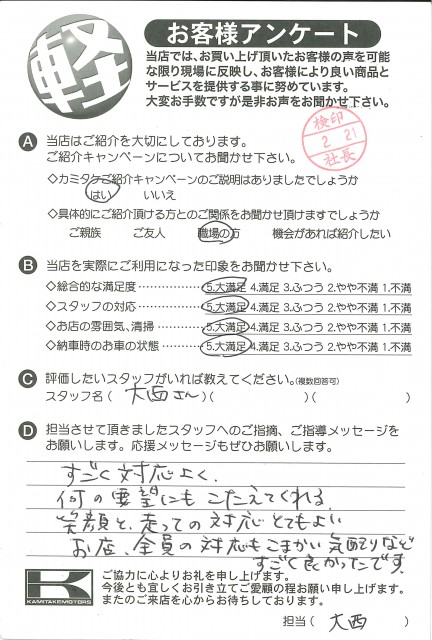 軽
お客様アンケート
当店では、お買い上げ頂いたお客様の声を可能
な限り現場に反映し、お客様により良い商品と
サービスを提供する事に努めています。
大変お手数ですが是非お声をお聞かせ下さい。
検印
2 21
社長
A 当店はご紹介を大切にしております。
ご紹介キャンペーンについてお聞かせ下さい。
◇カミタケご紹介キャンペーンのご説明はありましたでしょうか
はい いいえ
◇具体的にご紹介頂ける方とのご関係をお聞かせ頂けますでしょうか
ご親族 ご友人 職場の方 機会があれば紹介したい
B 当店を実際にご利用になった印象をお聞かせ下さい。
◇総合的な満足度……………5.大満足 4.満足 3.ふつう 2.やや不満 1.不満
◇スタッフの対応……………5.大満足 4.満足 3.ふつう 2.やや不満 1.不満
◇お店の雰囲気、清掃………5.大満足 4.満足 3.ふつう 2.やや不満 1.不満
◇納車時のお車の状態………5.大満足 4.満足 3.ふつう 2.やや不満 1.不満
C 評価したいスタッフがいれば教えてください。(複数回答可)
スタッフ名( 大西さん )( )( )
D 担当させて頂きましたスタッフへのご指摘、ご指導メッセージを
お願いします。応援メッセージもぜひお願いします。
すごく対応よく、
何の要望にもこたえてくれる。
笑顔と、走っての対応とてもよい
お店、全員の対応もこまかい気配りなど
すごく良かったです。
K
KAMITAKEMOTORS
ご協力に心よりお礼を申し上げます。
今後とも宜しくお引き立てご愛顧の程お願い申し上げます。
またのご来店を心からお待ちしております。
担当( 大西 )